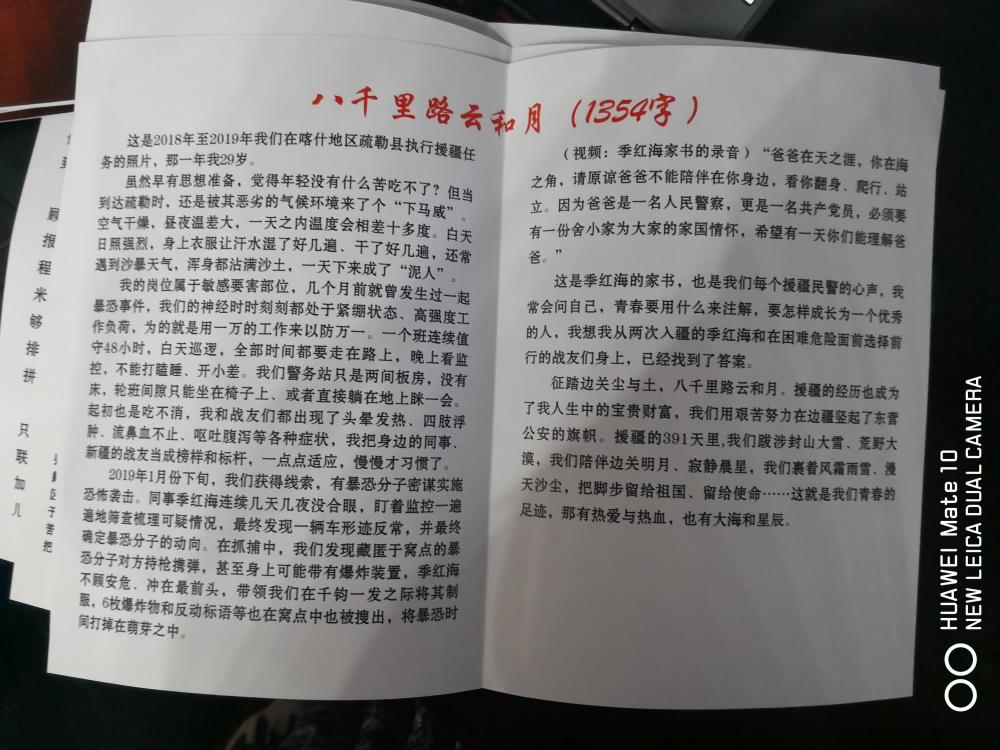 八千里路云和月（1354字）
这是2018年至2019年我们在喀什地区疏勒县执行援疆任
务的照片，那一年我29岁。
虽然早有思想准备，觉得年轻没有什么苦吃不了？但当
到达疏勒时，还是被其恶劣的气候环境来了个“下马威”。
空气干燥，昼夜温差大，一天之内温度会相差十多度。白天
日照强烈，身上衣服让汗水湿了好几遍、干了好几遍，还常
遇到沙暴天气，浑身都沾满沙土，一天下来成了“泥人”。
我的岗位属于敏感要害部位，几个月前就曾发生过一起
暴恐事件，我们的神经时时刻刻都处于紧绷状态、高强度工
作负荷，为的就是用一万的工作来以防万一。一个班连续值
守48小时，白天巡逻，全部时间都要走在路上，晚上看监
控，不能打瞌睡、开小差。我们警务站只是两间板房，没有
床，轮班间隙只能坐在椅子上、或者直接躺在地上眯一会。
起初也是吃不消，我和战友们都出现了头晕发热、四肢浮
肿、流鼻血不止、呕吐腹泻等各种症状，我把身边的同事、
新疆的战友当成榜样和标杆，一点点适应，慢慢才习惯了。
2019年1月份下旬，我们获得线索，有暴恐分子密谋实施
恐怖袭击。同事季红海连续几天几夜没合眼，盯着监控一遍
遍地筛查梳理可疑情况，最终发现一辆车形迹反常，并最终
确定暴恐分子的动向。在抓捕中，我们发现藏匿于窝点的暴
恐分子对方持枪携弹，甚至身上可能带有爆炸装置，季红海
不顾安危、冲在最前头，带领我们在千钧一发之际将其制
服，6枚爆炸物和反动标语等也在窝点中也被搜出，将暴恐时
间打掉在萌芽之中。
（视频：季红海家书的录音）“爸爸在天之涯，你在海
之角，请原谅爸爸不能陪伴在你身边，看你翻身、爬行、站
立。因为爸爸是一名人民警察，更是一名共产党员，必须要
有一份舍小家为大家的家国情怀，希望有一天你们能理解爸
爸。”
这是季红海的家书，也是我们每个援疆民警的心声，我
常会问自己，青春要用什么来注解，要怎样成长为一个优秀
的人，我想我从两次入疆的季红海和在困难危险面前选择前
行的战友们身上，已经找到了答案。
征踏边关尘与土，八千里路云和月。援疆的经历也成为
了我人生中的宝贵财富，我们用艰苦努力在边疆竖起了东营
公安的旗帜。援疆的391天里,我们跋涉封山大雪、荒野大
漠，我们陪伴边关明月、寂静晨星，我们裹着风霜雨雪、漫
天沙尘，把脚步留给祖国、留给使命……这就是我们青春的
足迹，那有热爱与热血，也有大海和星辰。
顾
报
程
米
够
排
拼
只
联
加
儿
子
苦
把
HUAWEI Mate 10
NEW LEICA DUAL CAMERA